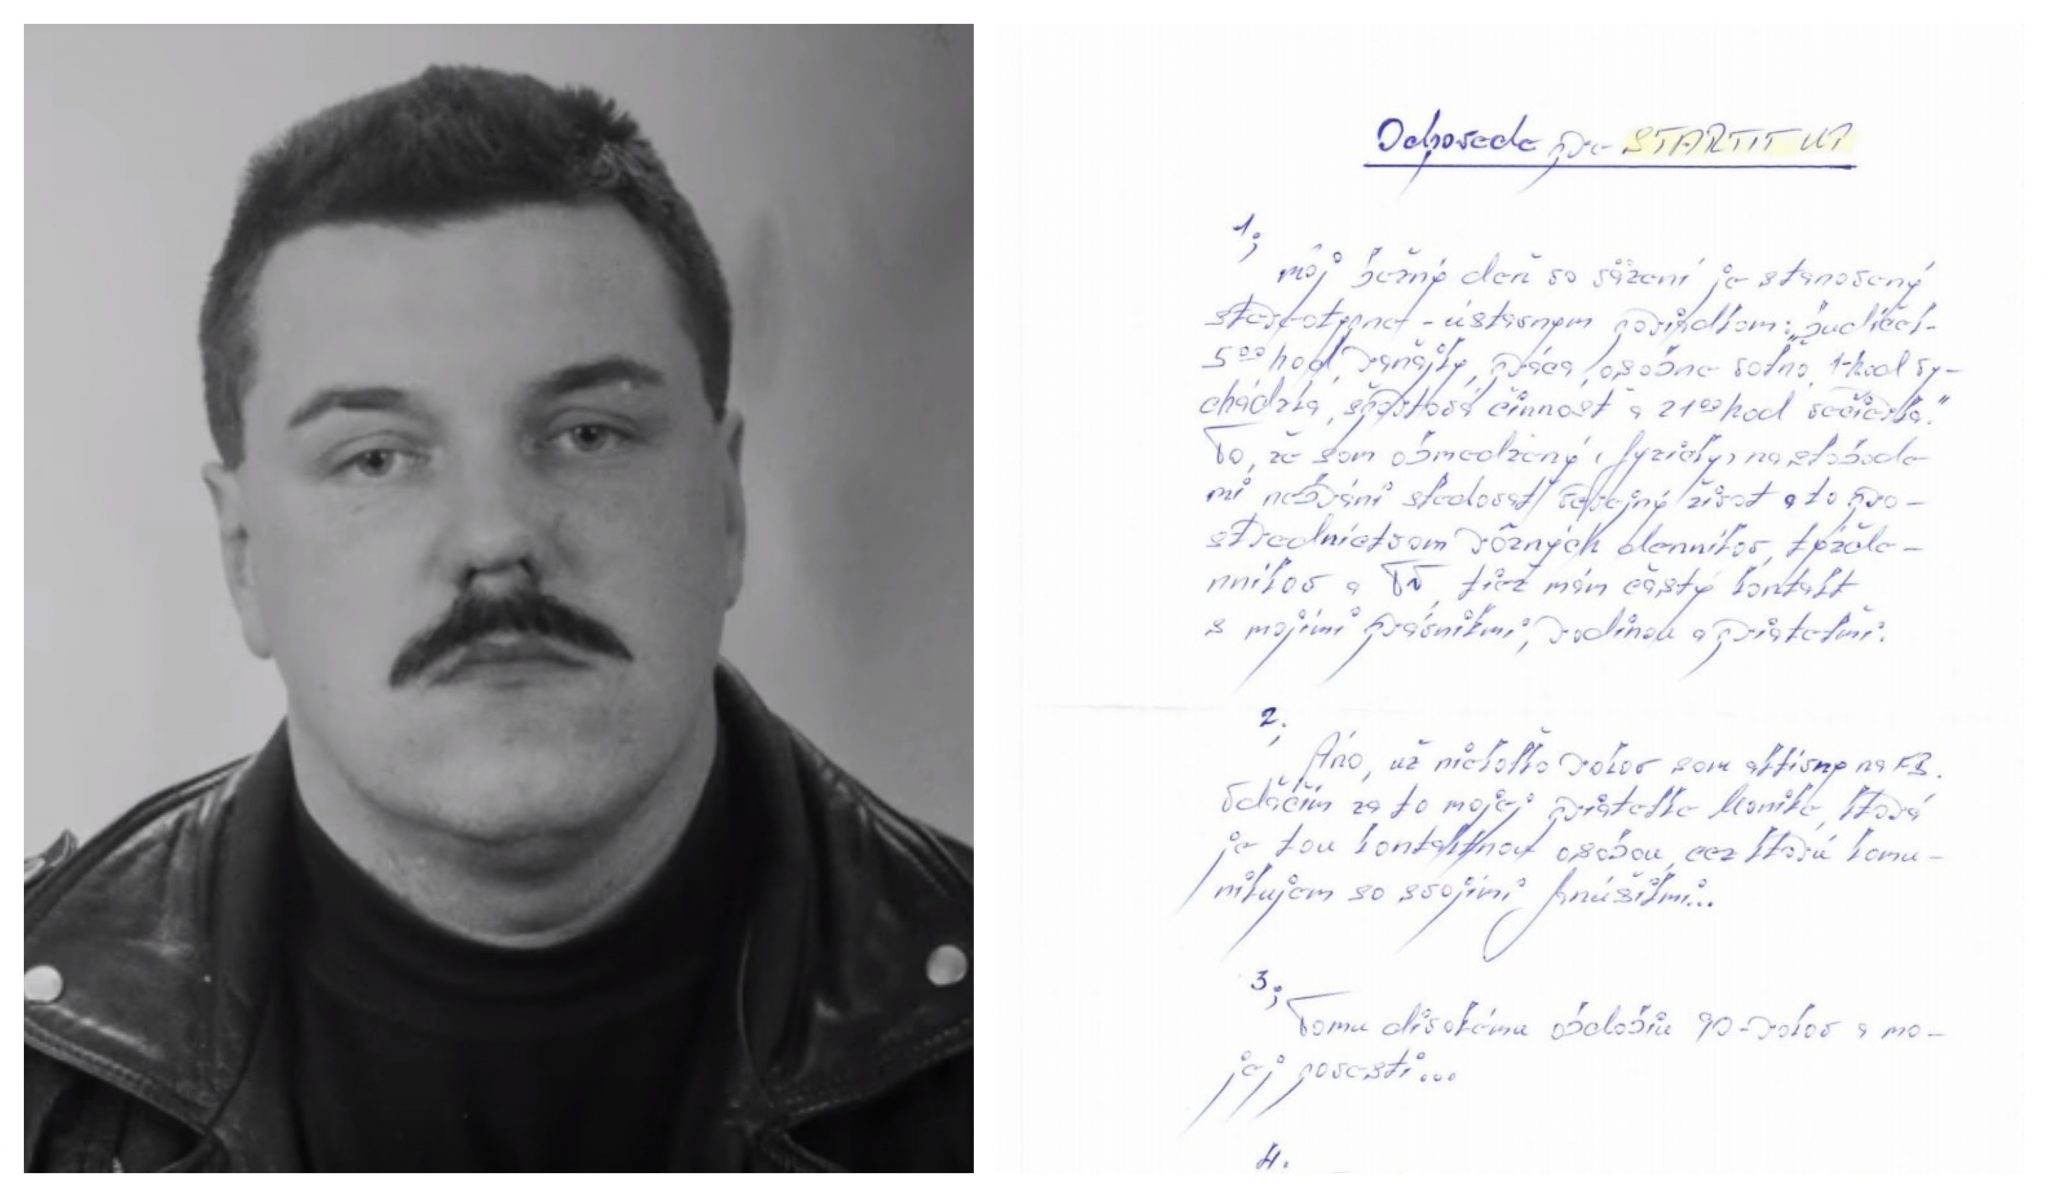 Odpovede pre STARTIT UP
1;
môj bežný deň vo väzení je stanovený
stereotypne - ústavným poriadkom: „budíček -
5⁰⁰ hod, raňajky, práca, osobné voľno, 1-hod vy-
chádzka, športová činnosť a 21⁰⁰ hod večierka."
To, že som obmedzený (fyzicky) na slobode
mi nebráni sledovať verejný život a to pro-
stredníctvom rôznych denníkov, týžde-
nníkov a TV, tiež mám častý kontakt
s mojimi právnikmi, rodinou a priateľmi.
2;
Áno, už niekoľko rokov som aktívny na FB.
Vďačím za to mojej priateľke Monike, ktorá
je tou kontaktnou osobou, cez ktorú komu-
nikujem so svojimi fanúšikmi...
3;
Tomu divokému obdobiu 90-rokov a mo-
jej povesti...
4.